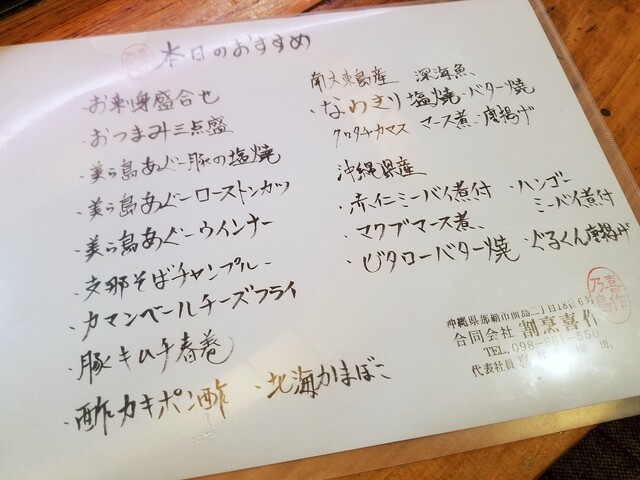 本日のおすすめ
・お刺身盛合せ
・おつまみ三点盛
・美ら島あぐー豚の塩焼
・美ら島あぐーローストンカツ
・美ら島あぐーウインナー
・支那そばチャンプルー
・カマンベールチーズフライ
・豚キムチ春巻
・酢カキポン酢 ・北海かまぼこ
南大東島産 深海魚、
・なわきり塩焼・バター焼
クロタチカマス マース煮・唐揚げ
沖縄県産
・赤仁ミーバイ煮付 ・ハンゴー
ミーバイ煮付
・マクブマース煮、
・ビタローバター焼 ・ぐるくん唐揚げ
沖縄県那覇市前島二丁目18
合同会社 割烹喜作
TEL. 098-861-550
代表社員
喜作
乃島